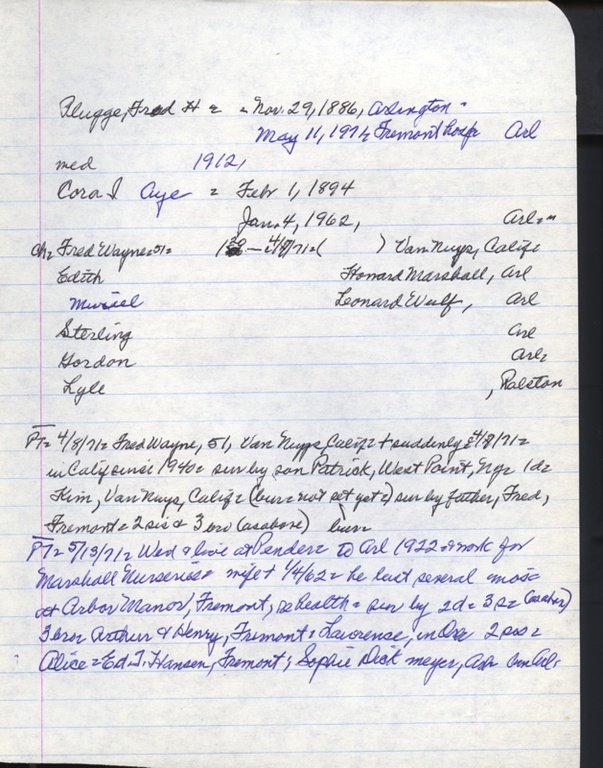 Plugge, Fred H = = Nov. 29, 1886, Arlington =
May 11, 1971, Fremont hosp Arl
med 1912,
Cora I Aye = Febr 1, 1894
Jan. 4, 1962, Arl=
ch= Fred Wayne=51= - 4/8/71=( ) Van Nuys, Calif=
Edith Howard Marshall, Arl
Muriel Leonard Wulf, Arl
Sterling Arl
Gordon Arl=
Lyle , Ralston
FT= 4/8/71= Fred Wayne, 51, Van Nuys, Calif= + suddenly = 4/8/71=
in Calif since 1940= sur by son Patrick, West Point, Ny= 1d=
Kim, Van Nuys, Calif= (bur= not set yet=) sur by father, Fred,
Fremont= 2 sis & 3 bro (as above) burr
FT= 5/13/71= Wed & live at Pender= to Arl 1922= work for
Marshall Nurseries= wife + 1/4/62= he last several mos=
at Arbor Manor, Fremont, health= sur by 2d= 3s= (as above)
3 bro= Arthur & Henry, Fremont= Lawrence, in Ore 2 sis=
Alice= Ed. J. Hansen, Fremont; Sophie Dick meyer, Arl=